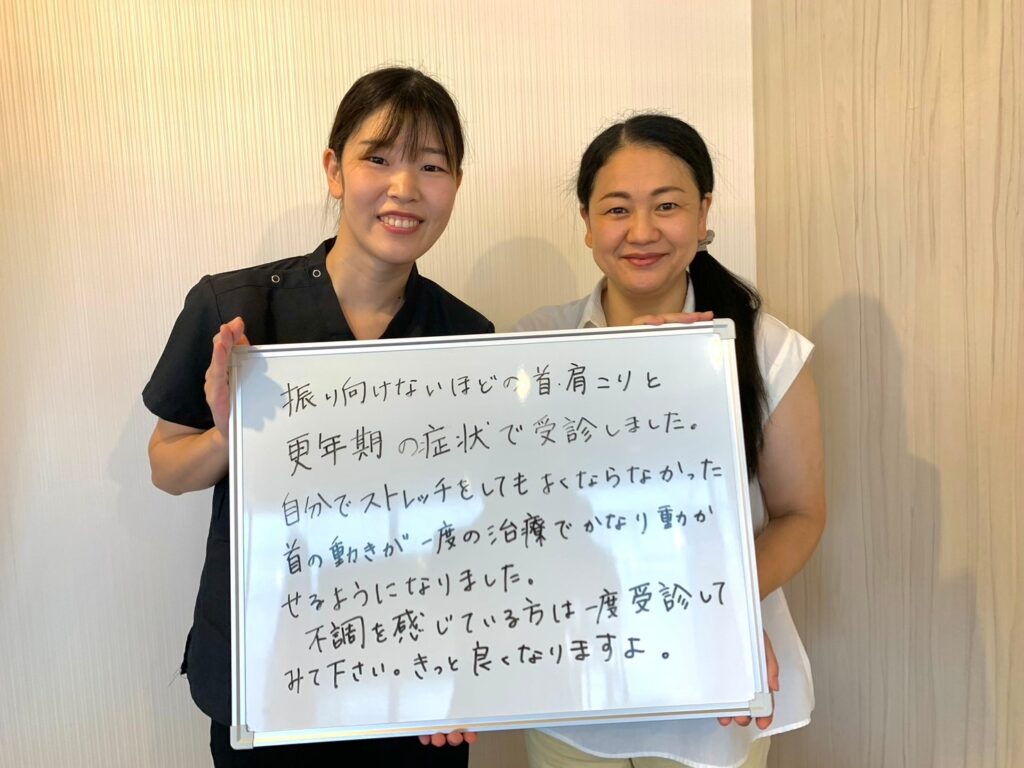 振り向けないほどの首・肩こりと
更年期の症状で受診しました。
自分でストレッチをしてもよくならなかった
首の動きが一度の治療でかなり動か
せるようになりました。
不調を感じている方は一度受診して
みて下さい。きっと良くなりますよ。